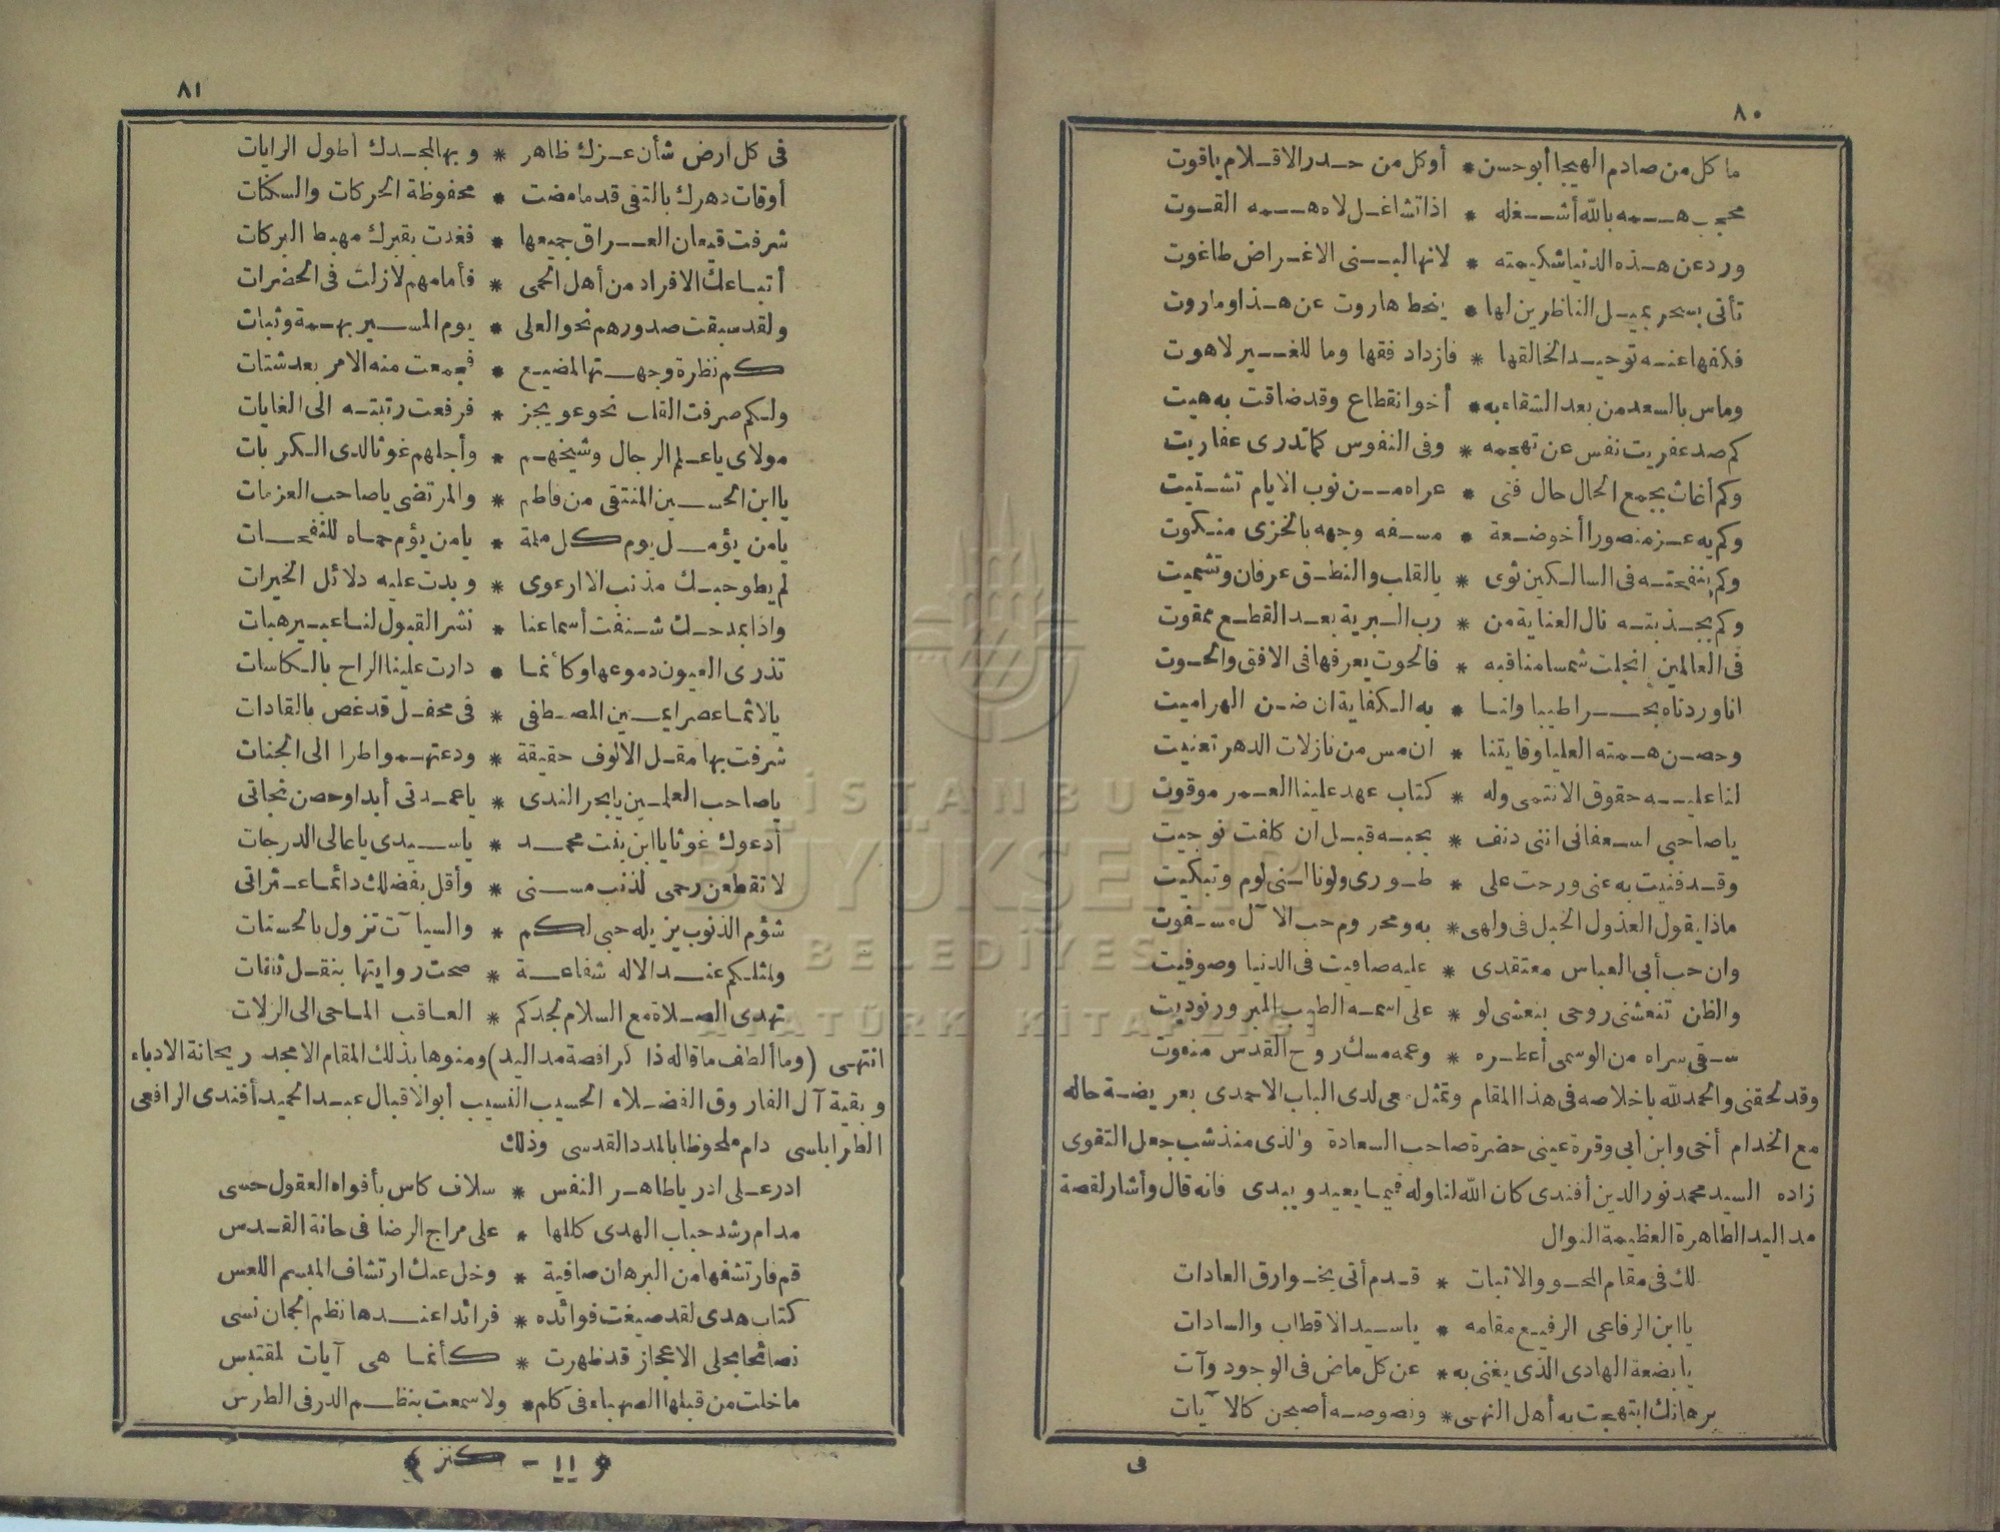 ٨٠
ما كل من صادم الهيجا أبو حسن * أو كل من حدر الاقلام ياقوت
محجب همه بالله أشغله * اذا تشاغل لاه همه القوت
ورد عن هذه الدنيا شكيمته * لانها لبنى الاغراض طاغوت
تأتى بسحر يميل الناظرين لها * ينحط هاروت عن هذا وماروت
فكفها عنه توحيد الخالقها * فازداد فقها وما للغير لاهوت
وماس بالسعد من بعد الشقاء به * أخو انقطاع وقد ضاقت به هيت
كم صد عفريت نفس عن تهجمه * وفى النفوس كما تدرى عفاريت
وكم أغاث بجمع الحال حال فتى * عراه من نوب الايام تشتيت
وكم به عز منصورا أخو ضعة * مسفه وجهه بالخزى منكوت
وكم بنفحته فى السالكين ثوى * بالقلب والنطق عرفان وتشميت
وكم بجذبته نال العناية من * رب البرية بعد القطع ممقوت
فى العالمين انجلت شمسا مناقبه * فالحوت يعرفها فى الافق والحوت
انا وردناه بحرا طيبا وانا * به الكفاية ان ضن الهراميت
وحصن همته العليا وقايتنا * ان مس من نازلات الدهر تعنيت
لنا عليه حقوق الانتمى وله * كتاب عهد علينا العمر موقوت
يا صاحبى اسعفانى اننى دنف * بحبه قبل ان كلفت نوجيت
وقد فنيت به عنى ورحت على * طورى ولو نالنى لوم وتبكيت
ماذا يقول العذول الخبل فى ولهى * به ومحروم حب الآل مسفوت
وان حب أبى العباس معتقدى * عليه صافيت فى الدنيا وصوفيت
والظن تنعشنى روحى بنعشى لو * على اسمه الطيب المبرور نوديت
سقى سراه من الوسمى أعطره * وعمه مسك روح القدس منعوت
وقد لحقنى والحمد لله باخلاصه فى هذا المقام وتمثل معى لدى الباب الاحمدى بعريضة حاله
مع الخدام أخى وابن أبى وقرة عينى حضرة صاحب السعادة والذى منذ شب جعل التقوى
زاده السيد محمد نور الدين أفندى كان الله لنا وله فيما يعيد ويبدى فانه قال وأشار لقصة
مد اليد الطاهرة العظيمة النوال
لك فى مقام المحو والاثبات * قدم أتى بخوارق العادات
يا ابن الرفاعى الرفيع مقامه * يا سيد الاقطاب والسادات
يا بضعة الهادى الذى يغنى به * عن كل ماض فى الوجود وآت
برهانك ابتهجت به أهل النهى * ونصوصه أصبحن كالآيات
فى
٨١
فى كل أرض شأن عزك ظاهر * وبها لمجدك أطول الرايات
أوقات دهرك بالتقى قد ما مضت * محفوظة الحركات والسكنات
شرفت قيعان العراق جميعها * فغدت بقبرك مهبط البركات
أتباعك الافراد من أهل الحمى * فأمامهم لا زلت فى الحضرات
ولقد سبقت صدورهم نحو العلى * يوم المسير بهمة وثبات
كم نظرة وجهتها لمضيع * فجمعت منه الامر بعد شتات
ولكم صرفت القلب نحو عويجز * فرفعت رتبته الى الغايات
مولاى يا علم الرجال وشيخهم * وأجلهم غوثا لدى الكربات
يا ابن الحسين المنتقى من فاطم * والمرتضى يا صاحب العزمات
يا من يؤمل يوم كل ملمة * يا من يؤم حماه للنفحات
لم يطو حبك مذنب الا ارعوى * وبدت عليه دلائل الخيرات
واذا بمدحك شنفت أسماعنا * نشر القبول لنا عبير هبات
تذرى العيون دموعها وكأنما * دارت علينا الراح بالكاسات
يا لاثما عصرا يمين المصطفى * فى محفل قد غص بالقادات
شرفت بها مقل الالوف حقيقة * ودعتهمو اطرا الى الجنات
يا صاحب العلمين يا بحر الندى * يا عمدتى أبدا وحصن نجاتى
أدعوك غوثا يا ابن بنت محمد * يا سيدى يا عالى الدرجات
لا تقطعن رحمى لذنب مسنى * وأقل بفضلك دائما عثراتى
شؤم الذنوب يزيله حبى لكم * والسيآت تزول بالحسنات
ولمثلكم عند الاله شفاعة * صحت روايتها بنقل ثقات
تهدى الصلاة مع السلام لجدكم * العاقب الماحى الى الزلات
انتهى (وما ألطف ما قاله ذاكرا قصة مد اليد) ومنوها بذلك المقام الامجد ريحانة الادباء
وبقية آل الفاروق الفضلاء الحسيب النسيب أبو الاقبال عبد الحميد أفندى الرافعى
الطرابلسى دام ملحوظا بالمدد القدسى وذلك
ادر على ادر يا طاهر النفس * سلاف كاس بأفواه العقول حسى
مدام رشد حباب الهدى كللها * على مزاج الرضا فى حانة القدس
قم فارتشفها من البرهان صافية * وخل عنك ارتشاف المبسم اللعس
كتاب هدى لقد صيغت فوائده * فرائدا عندها نظم الجمان نسى
نصائحا بحلى الاعجاز قد ظهرت * كأنما هى آيات لمقتبس
ما خلت من قبلها الصهباء فى كلم * ولا سمعت بنظم الدر فى الطرس
﴿ ١١ - كنز ﴾
İSTANBUL
BÜYÜKŞEHİR
BELEDİYESİ
ATATÜRK KİTAPLIĞI